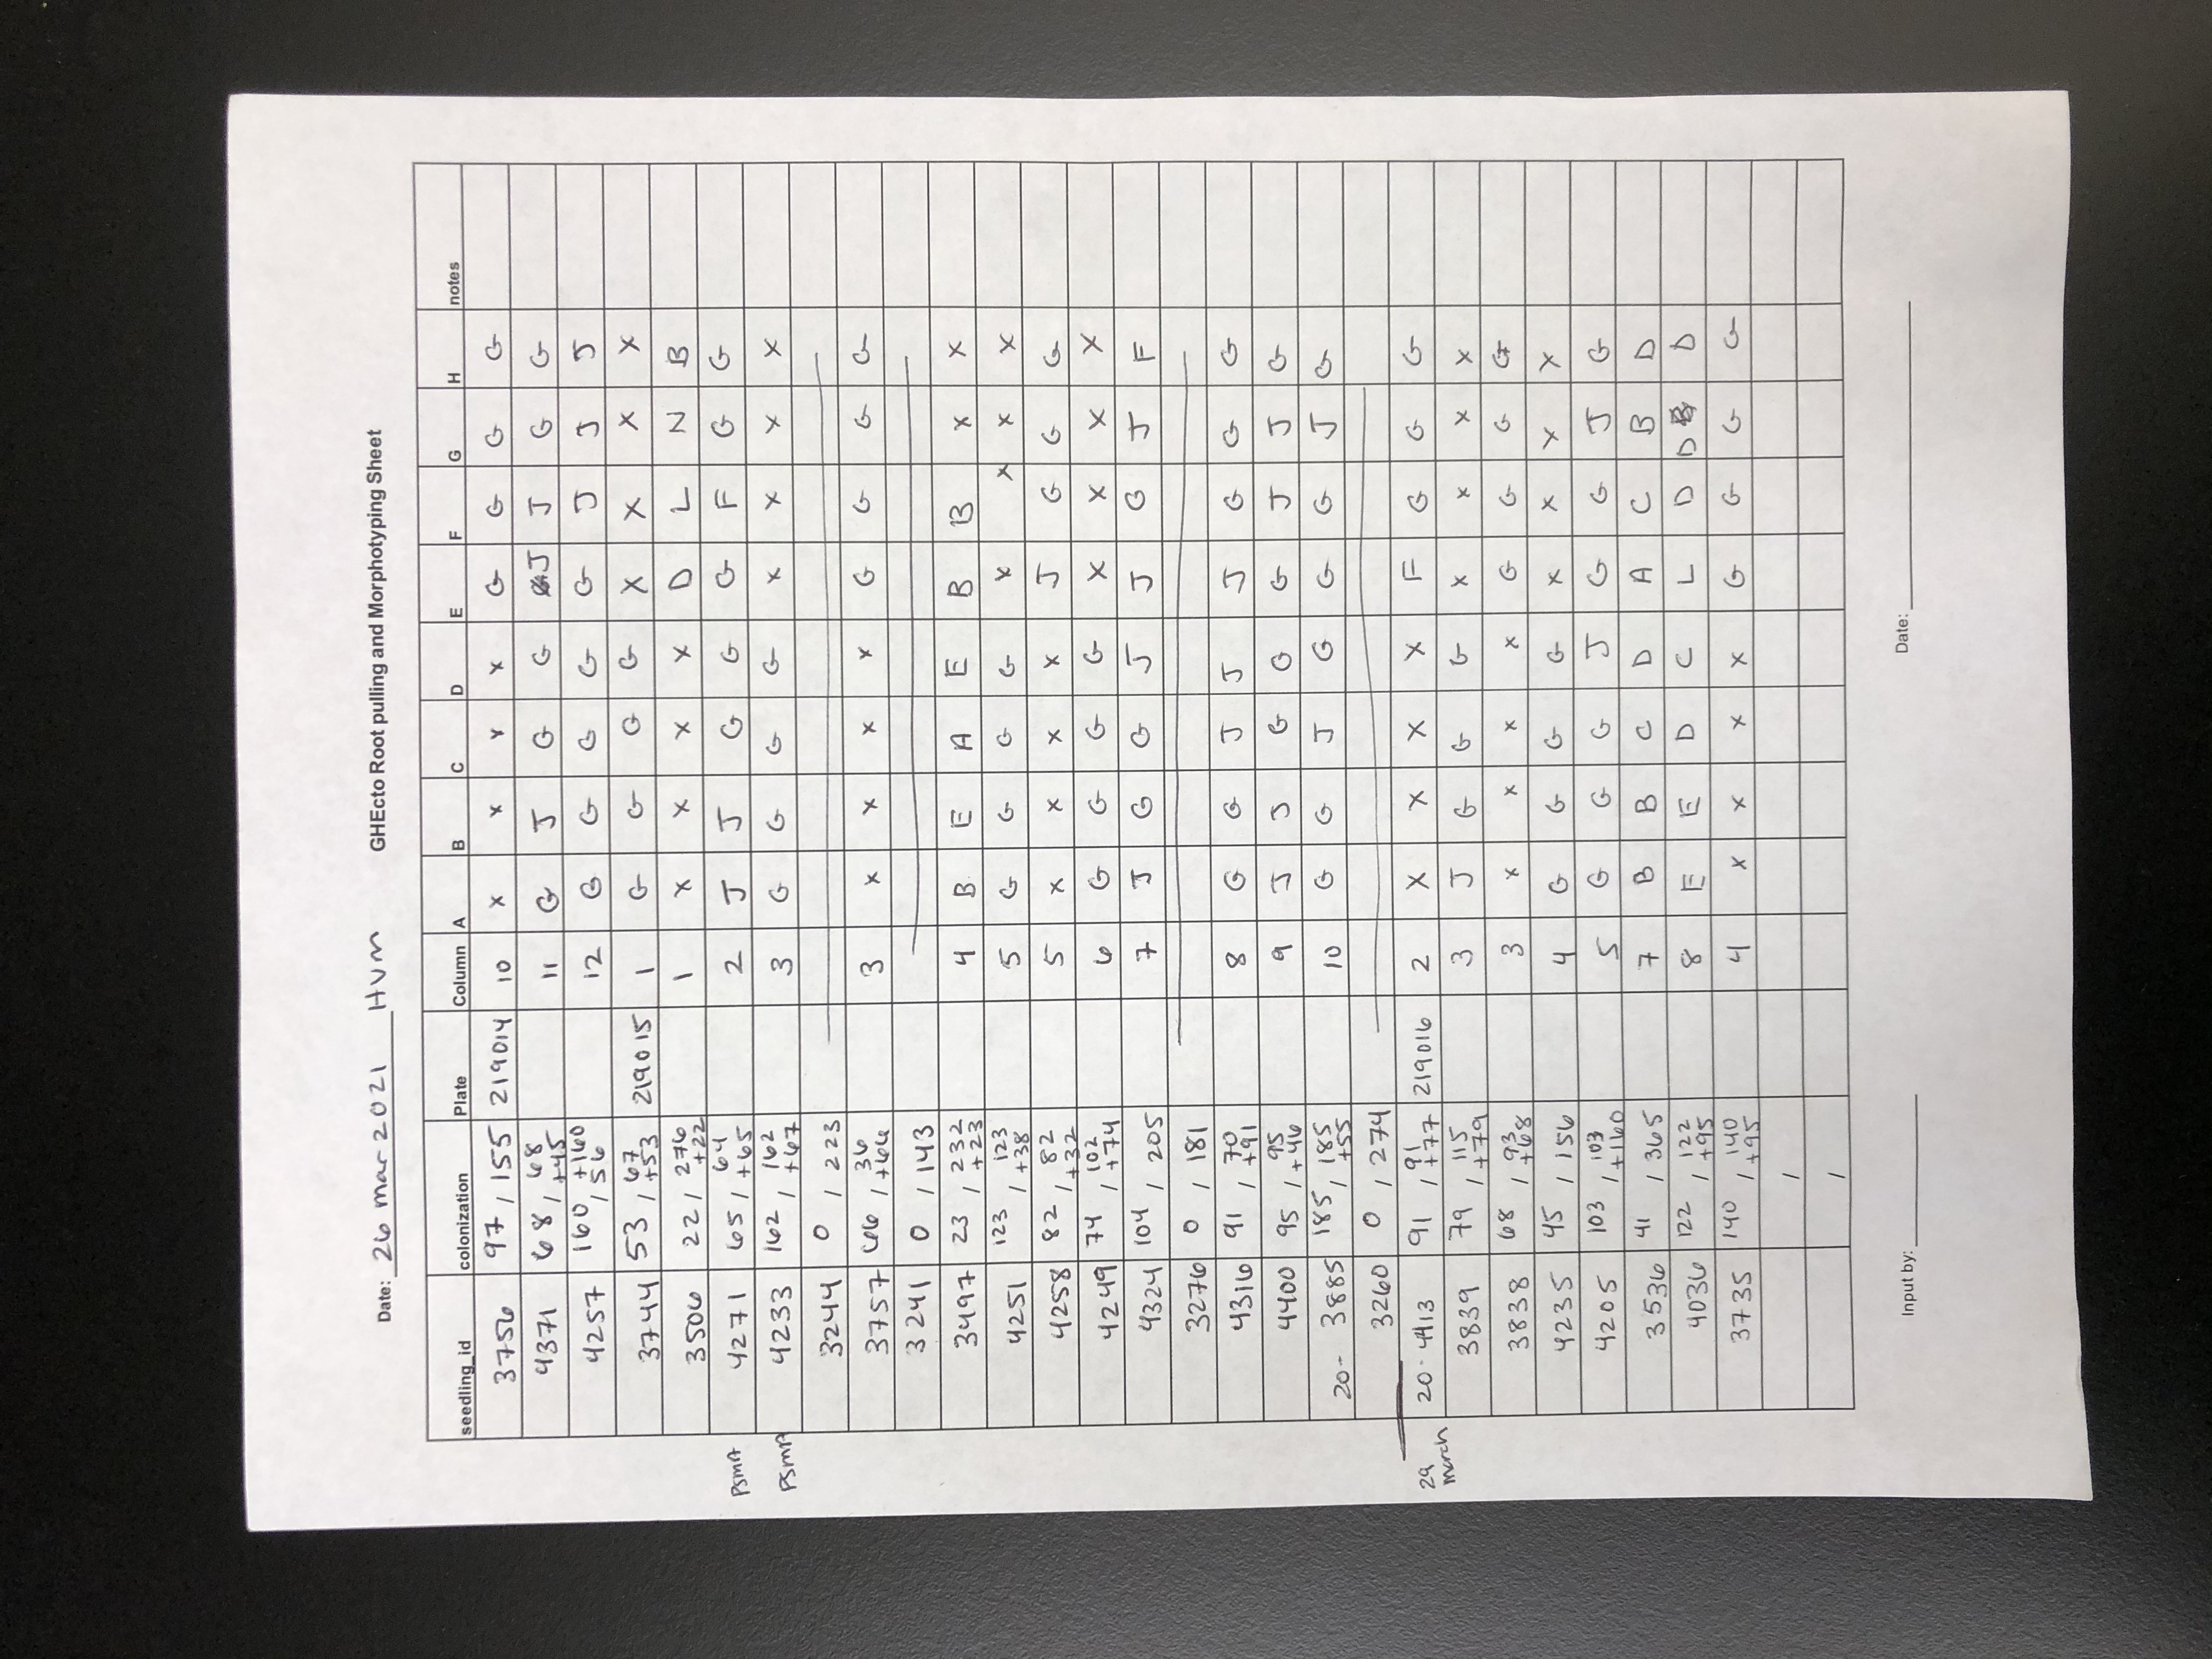 Date: 26 mar 2021 HVM GHEcto Root pulling and Morphotyping Sheet
seedling_id colonization Plate Column A B C D E F G H notes
3756 97 / 155 219014 10 x x x x G G G G
4371 68 / 68 +45 11 G J G G J J G G
4257 160 / +160 56 12 G G G G G J J J
3744 53 / 67 +53 219015 1 G G G G X X X X
3506 22 / 276 +22 1 X X X X D L N B
PSMA 4271 65 / 64 +65 2 J J G G G F G G
PSMA 4233 162 / 162 +67 3 G G G G x x x x
3244 0 / 223
3757 66 / 36 +66 3 x x x x G G G G
3241 0 / 143
3497 23 / 232 +23 4 B E A E B B x x
4251 123 / 123 +38 5 G G G G x x x x
4258 82 / 82 +32 5 x x x x J G G G
4249 74 / 102 +74 6 G G G G x x x x
4324 104 / 205 7 J G G J J G J F
3276 0 / 181
4316 91 / 70 +91 8 G G J J J G G G
4400 95 / 95 +46 9 J J G G G J J G
20- 3885 185 / 185 +55 10 G G J G G G J G
3260 0 / 274
29 march 20- 4413 91 / 91 +77 219016 2 X X X X F G G G
3839 79 / 115 +79 3 J G G G x x x x
3838 68 / 93 +68 3 x x x x G G G G
4235 45 / 156 4 G G G G x x x x
4205 103 / 103 +160 5 G G G J G G J G
3536 41 / 365 7 B B C D A C B D
4036 122 / 122 +95 8 E E D C L D D D
3735 140 / 140 +95 4 x x x x G G G G
/
/
Input by: Date: